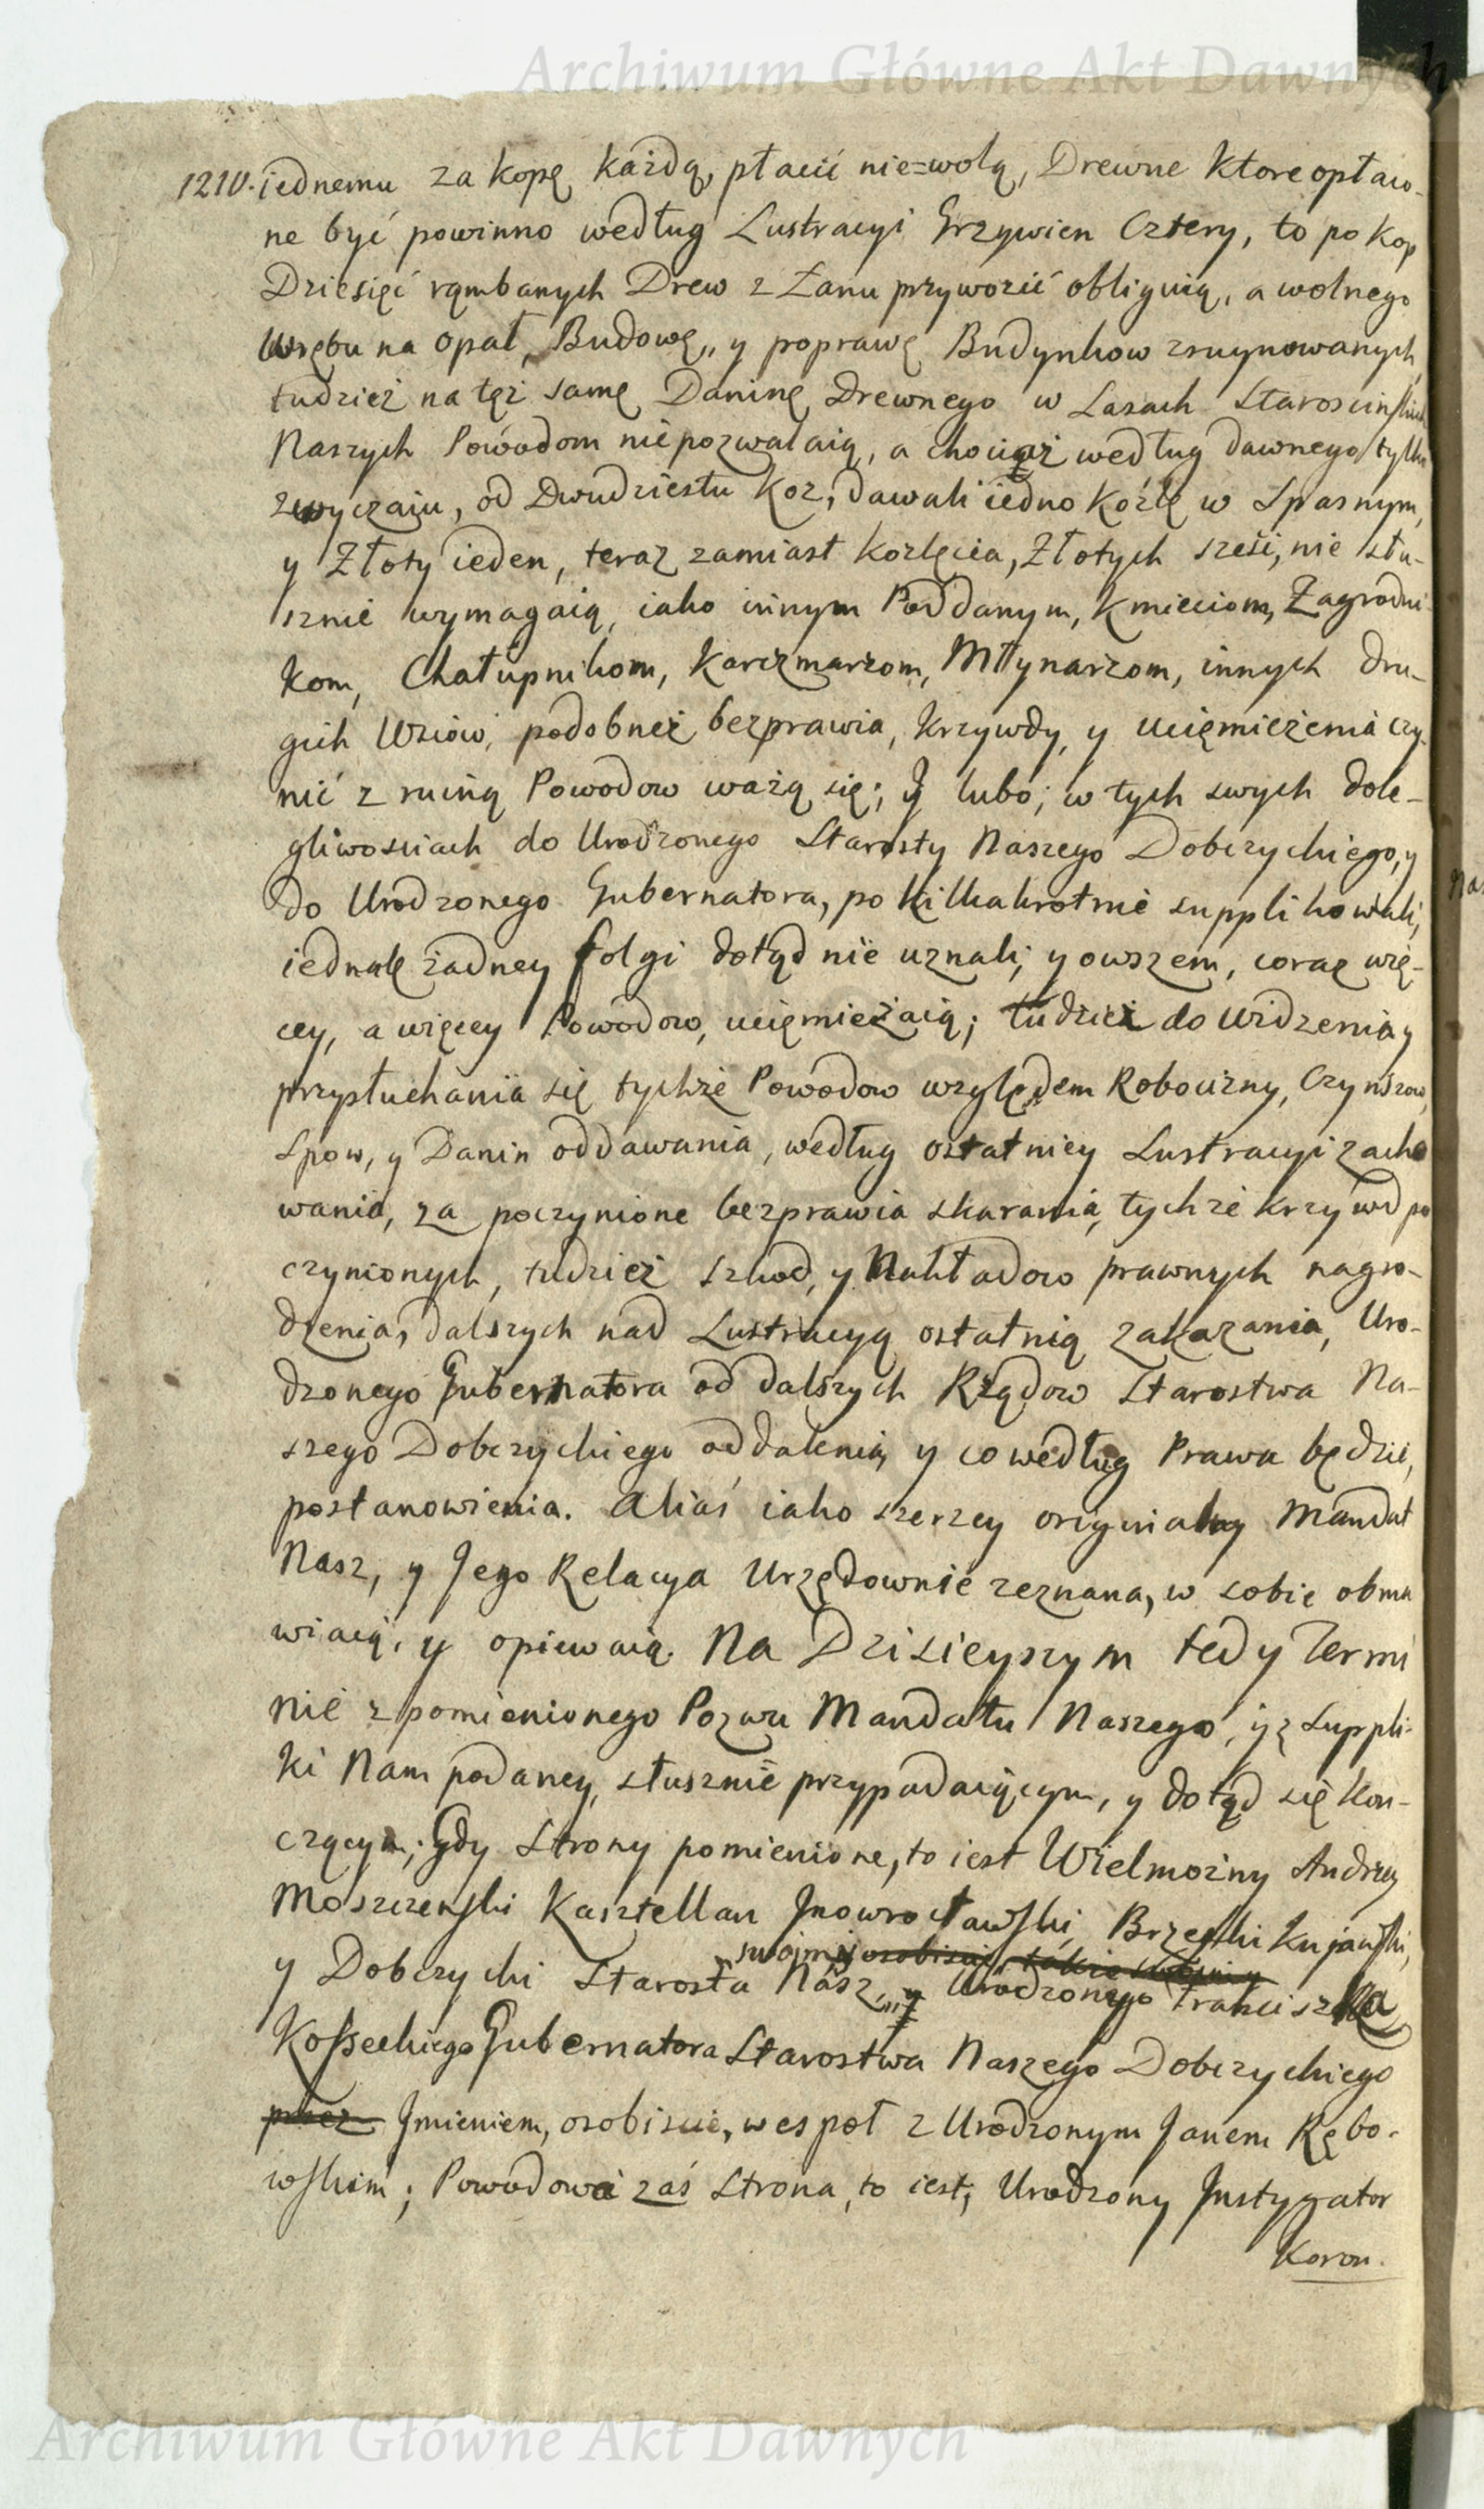 Archiwum Główne Akt Dawnych
1210. iednemu za kopę każdą, płacić nie=wolą, Drewne ktore opłaco-
ne być powinno według Lustracyi Grzywien Cztery, to po kop
Dziesięć rąmbanych Drew z Łanu przywozić obliguią, a wolnego
Wrębu na opał, Budowę,, y poprawę Budynkow zruynowanych,
tudzież na tęż samę Daninę Drewnego w Lasach Starościńskich
Naszych Powodom niepozwalaią, a chociąż według dawnego tylko
zwyczaiu, od Dwudziestu Koz, dawali iedno Koźlę w Spasnym,
y Złoty ieden, teraz zamiast kozlęcia, Złotych sześć, nie słu-
sznie wymagaią, iako innym Poddanym, Kmieciom, Zagrodni-
kom, Chałupnikom, Karczmarzom, Młynarzom, innych dru-
gich Wsiow, podobneż bezprawia, krzywdy, y ucięmiężenia czy-
nić z ruiną Powodow ważą się; Y lubo, w tych swych dole-
gliwosciach do Urodzonego Starosty Naszego Dobczyckiego, y
do Urodzonego Gubernatora, po kilkakrotnie supplikowali,
iednak żadney folgi dotąd nie uznali, y owszem, coraz wię-
cey, a więcey Powodow, ucięmiężaią; tudzież do widzenia y
przysłuchania się tychże Powodow względem Robocizny, Czynszow,
Spow, y Danin oddawania, według ostatniey Lustracyi zacho
wania, za poczynione bezprawia skarania, tychże krzywd po
czynionych, tudzież szkod, y Nakładow prawnych nagro-
dzenia, dalszych nad Lustracyą ostatnią zakazania, Uro-
dzonego Gubernatora od dalszych Rządow Starostwa Na-
szego Dobczyckiego oddalenia, y co według Prawa będzie,
postanowienia. Aliaś iako szerzey oryginalny Mandat
Nasz, y Jego Relacya Urzędownie zeznana, w sobie obma
wiaią, y opiewaią. Na Dzisieyszym tedy Termi
nie z pomienionego Pozwu Mandatu Naszego, y z Suppli-
ki Nam podaney, słusznie przypadaiącym, y dotąd się kon-
czącym; Gdy Strony pomienione, to iest Wielmożny Andrzey
Moszczenski Kasztellan Jnowrocławski, Brzeski Kujawski,
swoim y osobiscie, także
y Dobczycki Starosta Nasz,,, y Urodzonego Franciszka
Kosseckiego Gubernatora Starostwa Naszego Dobczyckiego
przez Jmieniem, osobiscie, wespoł z Urodzonym Janem Rębo-
wskim; Powodowa zaś Strona, to iest, Urodzony Jnstygator
Koron.
Archiwum Główne Akt Dawnych